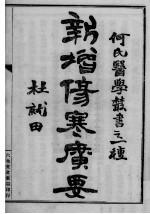 何氏醫學叢書之一種
新增傷寒廣要
杜就田